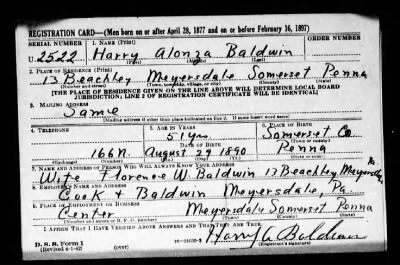 REGISTRATION CARD—(Men born on or after April 28, 1877 and on or before February 16, 1897)
SERIAL NUMBER 1. NAME (Print)
U. 2522 Harry Alonza Baldwin
(First) (Middle) (Last)
2. PLACE OF RESIDENCE (Print)
13 Beachley Meyersdale Somerset Penna
(Number and street) (Town, township, village, or city) (County) (State)
[THE PLACE OF RESIDENCE GIVEN ON THE LINE ABOVE WILL DETERMINE LOCAL BOARD
JURISDICTION; LINE 2 OF REGISTRATION CERTIFICATE WILL BE IDENTICAL]
3. MAILING ADDRESS
Same
(Mailing address if other than place indicated on line 2. If same insert word same)
4. TELEPHONE 5. AGE IN YEARS 6. PLACE OF BIRTH
51 yrs Somerset Co
DATE OF BIRTH (Town or county)
166M August 29 1890 Penna
(Exchange) (Number) (Mo.) (Day) (Yr.) (State or country)
7. NAME AND ADDRESS OF PERSON WHO WILL ALWAYS KNOW YOUR ADDRESS
Wife Florence W. Baldwin 13 Beachley Meyersdale Pa
8. EMPLOYER'S NAME AND ADDRESS
Cook & Baldwin Meyersdale, Pa
9. PLACE OF EMPLOYMENT OR BUSINESS
Center Meyersdale Somerset Penna
(Number and street or R. F. D. number) (Town) (County) (State)
I AFFIRM THAT I HAVE VERIFIED ABOVE ANSWERS AND THAT THEY ARE TRUE.
D. S. S. Form 1
(Revised 4-1-42) (over) Harry A Baldwin